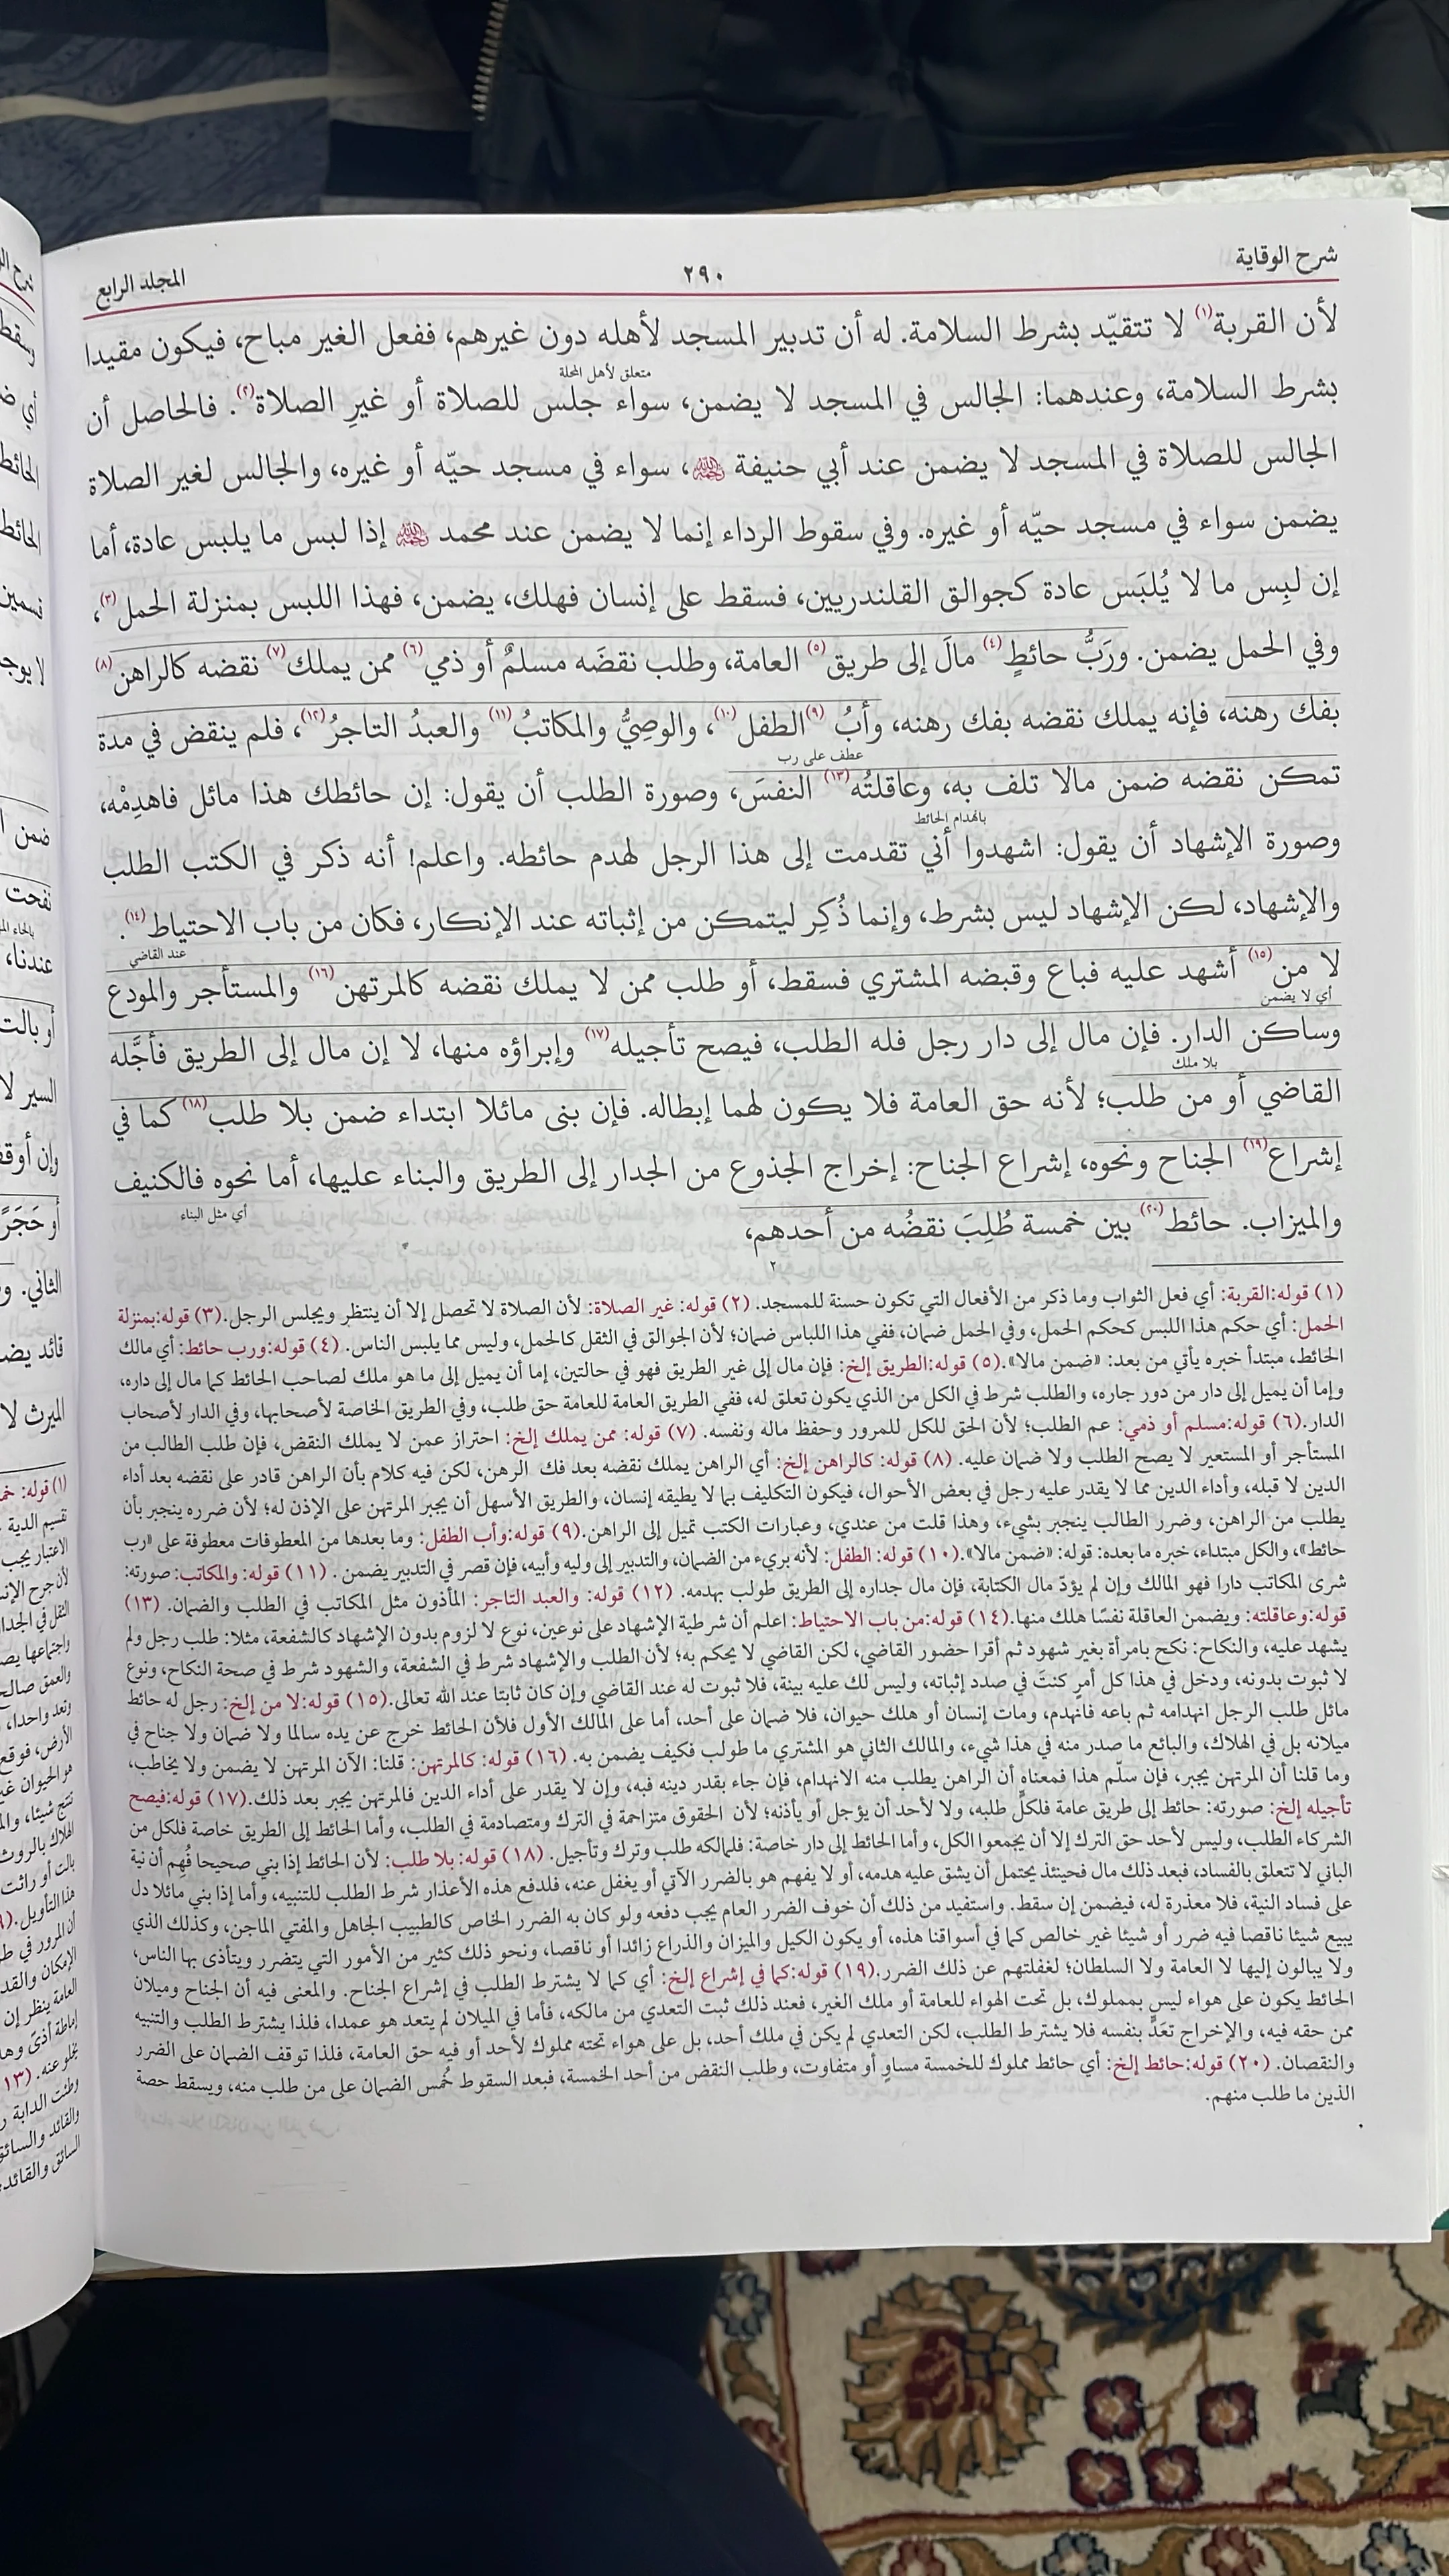 شرح الوقاية
٢٩٠
المجلد الرابع
لأن القربة(١) لا تتقيّد بشرط السلامة. له أن تدبير المسجد لأهله دون غيرهم، ففعل الغير مباح، فيكون مقيدا
متعلق لأهل المحلة
بشرط السلامة، وعندهما: الجالس في المسجد لا يضمن، سواء جلس للصلاة أو غيرِ الصلاة(٢). فالحاصل أن
الجالس للصلاة في المسجد لا يضمن عند أبي حنيفة، سواء في مسجد حيّه أو غيره، والجالس لغير الصلاة
يضمن سواء في مسجد حيّه أو غيره. وفي سقوط الرداء إنما لا يضمن عند محمد إذا لبس ما يلبس عادة، أما
إن لبِس ما لا يُلبَس عادة كجوالق القلندريين، فسقط على إنسان فهلك، يضمن، فهذا اللبس بمنزلة الحمل(٣)،
وفي الحمل يضمن. ورَبُّ حائطٍ(٤) مالَ إلى طريق(٥) العامة، وطلب نقضَه مسلمٌ أو ذمي(٦) ممن يملك(٧) نقضه كالراهن(٨)
بفك رهنه، فإنه يملك نقضه بفك رهنه، وأبُ(٩) الطفل(١٠)، والوصِيُّ والمكاتبُ(١١) والعبدُ التاجرُ(١٢)، فلم ينقض في مدة
عطف على رب
تمكن نقضه ضمن مالا تلف به، وعاقلتُه(١٣) النفسَ، وصورة الطلب أن يقول: إن حائطك هذا مائل فاهدِمْه،
بانهدام الحائط
وصورة الإشهاد أن يقول: اشهدوا أني تقدمت إلى هذا الرجل لهدم حائطه. واعلم! أنه ذكر في الكتب الطلب
والإشهاد، لكن الإشهاد ليس بشرط، وإنما ذُكِر ليتمكن من إثباته عند الإنكار، فكان من باب الاحتياط(١٤).
عند القاضي
لا من(١٥) أشهد عليه فباع وقبضه المشتري فسقط، أو طلب ممن لا يملك نقضه كالمرتهن(١٦) والمستأجر والمودع
أي لا يضمن
وساكن الدار. فإن مال إلى دار رجل فله الطلب، فيصح تأجيله(١٧) وإبراؤه منها، لا إن مال إلى الطريق فأجَّله
بلا ملك
القاضي أو من طلب؛ لأنه حق العامة فلا يكون لهما إبطاله. فإن بنى مائلا ابتداء ضمن بلا طلب(١٨) كما في
إشراع(١٩) الجناح ونحوه، إشراع الجناح: إخراج الجذوع من الجدار إلى الطريق والبناء عليها، أما نحوه فالكنيف
أي مثل البناء
والميزاب. حائط(٢٠) بين خمسة طُلِبَ نقضُه من أحدهم،
(١) قوله:القربة: أي فعل الثواب وما ذكر من الأفعال التي تكون حسنة للمسجد. (٢) قوله: غير الصلاة: لأن الصلاة لا تحصل إلا أن ينتظر ويجلس الرجل.(٣) قوله:بمنزلة
الحمل: أي حكم هذا اللبس كحكم الحمل، وفي الحمل ضمان، ففي هذا اللباس ضمان؛ لأن الجوالق في الثقل كالحمل، وليس مما يلبس الناس. (٤) قوله:ورب حائط: أي مالك
الحائط، مبتدأ خبره يأتي من بعد: «ضمن مالا».(٥) قوله:الطريق إلخ: فإن مال إلى غير الطريق فهو في حالتين، إما أن يميل إلى ما هو ملك لصاحب الحائط كما مال إلى داره،
وإما أن يميل إلى دار من دور جاره، والطلب شرط في الكل من الذي يكون تعلق له، ففي الطريق العامة للعامة حق طلب، وفي الطريق الخاصة لأصحابها، وفي الدار لأصحاب
الدار.(٦) قوله:مسلم أو ذمي: عم الطلب؛ لأن الحق للكل للمرور وحفظ ماله ونفسه. (٧) قوله: ممن يملك إلخ: احتراز عمن لا يملك النقض، فإن طلب الطالب من
المستأجر أو المستعير لا يصح الطلب ولا ضمان عليه. (٨) قوله: كالراهن إلخ: أي الراهن يملك نقضه بعد فك الرهن، لكن فيه كلام بأن الراهن قادر على نقضه بعد أداء
الدين لا قبله، وأداء الدين مما لا يقدر عليه رجل في بعض الأحوال، فيكون التكليف بما لا يطيقه إنسان، والطريق الأسهل أن يجبر المرتهن على الإذن له؛ لأن ضرره ينجبر بأن
يطلب من الراهن، وضرر الطالب ينجبر بشيء، وهذا قلت من عندي، وعبارات الكتب تميل إلى الراهن.(٩) قوله:وأب الطفل: وما بعدها من المعطوفات معطوفة على «رب
حائط»، والكل مبتداء، خبره ما بعده: قوله: «ضمن مالا».(١٠) قوله: الطفل: لأنه بريء من الضمان، والتدبير إلى وليه وأبيه، فإن قصر في التدبير يضمن. (١١) قوله: والمكاتب: صورته:
شرى المكاتب دارا فهو المالك وإن لم يؤدّ مال الكتابة، فإن مال جداره إلى الطريق طولب بهدمه. (١٢) قوله: والعبد التاجر: المأذون مثل المكاتب في الطلب والضمان. (١٣)
قوله:وعاقلته: ويضمن العاقلة نفسًا هلك منها.(١٤) قوله:من باب الاحتياط: اعلم أن شرطية الإشهاد على نوعين، نوع لا لزوم بدون الإشهاد كالشفعة، مثلا: طلب رجل ولم
يشهد عليه، والنكاح: نكح بامرأة بغير شهود ثم أقرا حضور القاضي، لكن القاضي لا يحكم به؛ لأن الطلب والإشهاد شرط في الشفعة، والشهود شرط في صحة النكاح، ونوع
لا ثبوت بدونه، ودخل في هذا كل أمرٍ كنتَ في صدد إثباته، وليس لك عليه بينة، فلا ثبوت له عند القاضي وإن كان ثابتا عند الله تعالى.(١٥) قوله:لا من إلخ: رجل له حائط
مائل طلب الرجل انهدامه ثم باعه فانهدم، ومات إنسان أو هلك حيوان، فلا ضمان على أحد، أما على المالك الأول فلأن الحائط خرج عن يده سالما ولا ضمان ولا جناح في
ميلانه بل في الهلاك، والبائع ما صدر منه في هذا شيء، والمالك الثاني هو المشتري ما طولب فكيف يضمن به. (١٦) قوله: كالمرتهن: قلنا: الآن المرتهن لا يضمن ولا يخاطب،
وما قلنا أن المرتهن يجبر، فإن سلّم هذا فمعناه أن الراهن يطلب منه الانهدام، فإن جاء بقدر دينه فبه، وإن لا يقدر على أداء الدين فالمرتهن يجبر بعد ذلك.(١٧) قوله:فيصح
تأجيله إلخ: صورته: حائط إلى طريق عامة فلكلٍّ طلبه، ولا لأحد أن يؤجل أو يأذنه؛ لأن الحقوق متزاحمة في الترك ومتصادمة في الطلب، وأما الحائط إلى الطريق خاصة فلكل من
الشركاء الطلب، وليس لأحد حق الترك إلا أن يجمعوا الكل، وأما الحائط إلى دار خاصة: فلمالكه طلب وترك وتأجيل. (١٨) قوله: بلا طلب: لأن الحائط إذا بني صحيحا فُهِم أن نية
الباني لا تتعلق بالفساد، فبعد ذلك مال فحينئذ يحتمل أن يشق عليه هدمه، أو لا يفهم هو بالضرر الآتي أو يغفل عنه، فلدفع هذه الأعذار شرط الطلب للتنبيه، وأما إذا بني مائلا دل
على فساد النية، فلا معذرة له، فيضمن إن سقط. واستفيد من ذلك أن خوف الضرر العام يجب دفعه ولو كان به الضرر الخاص كالطبيب الجاهل والمفتي الماجن، وكذلك الذي
يبيع شيئا ناقصا فيه ضرر أو شيئا غير خالص كما في أسواقنا هذه، أو يكون الكيل والميزان والذراع زائدا أو ناقصا، ونحو ذلك كثير من الأمور التي يتضرر ويتأذى بها الناس،
ولا يبالون إليها لا العامة ولا السلطان؛ لغفلتهم عن ذلك الضرر.(١٩) قوله:كما في إشراع إلخ: أي كما لا يشترط الطلب في إشراع الجناح. والمعنى فيه أن الجناح وميلان
الحائط يكون على هواء ليس بمملوك، بل تحت الهواء للعامة أو ملك الغير، فعند ذلك ثبت التعدي من مالكه، فأما في الميلان لم يتعد هو عمدا، فلذا يشترط الطلب والتنبيه
ممن حقه فيه، والإخراج تعَدٍّ بنفسه فلا يشترط الطلب، لكن التعدي لم يكن في ملك أحد، بل على هواء تحته مملوك لأحد أو فيه حق العامة، فلذا توقف الضمان على الضرر
والنقصان. (٢٠) قوله:حائط إلخ: أي حائط مملوك للخمسة مساوٍ أو متفاوت، وطلب النقض من أحد الخمسة، فبعد السقوط خُمس الضمان على من طلب منه، ويسقط حصة
الذين ما طلب منهم.